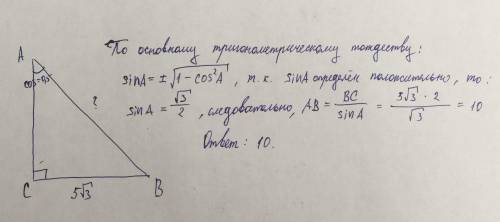 По основному тригонометрическому тождеству:
A
sin A = ±√(1 - cos²A), т.к. sin A определён положительно, то:
cos = 0,5
?
sin A = √3/2, следовательно, AB = BC/sin A = 5√3 · 2/√3 = 10
Ответ: 10.
C
5√3
B